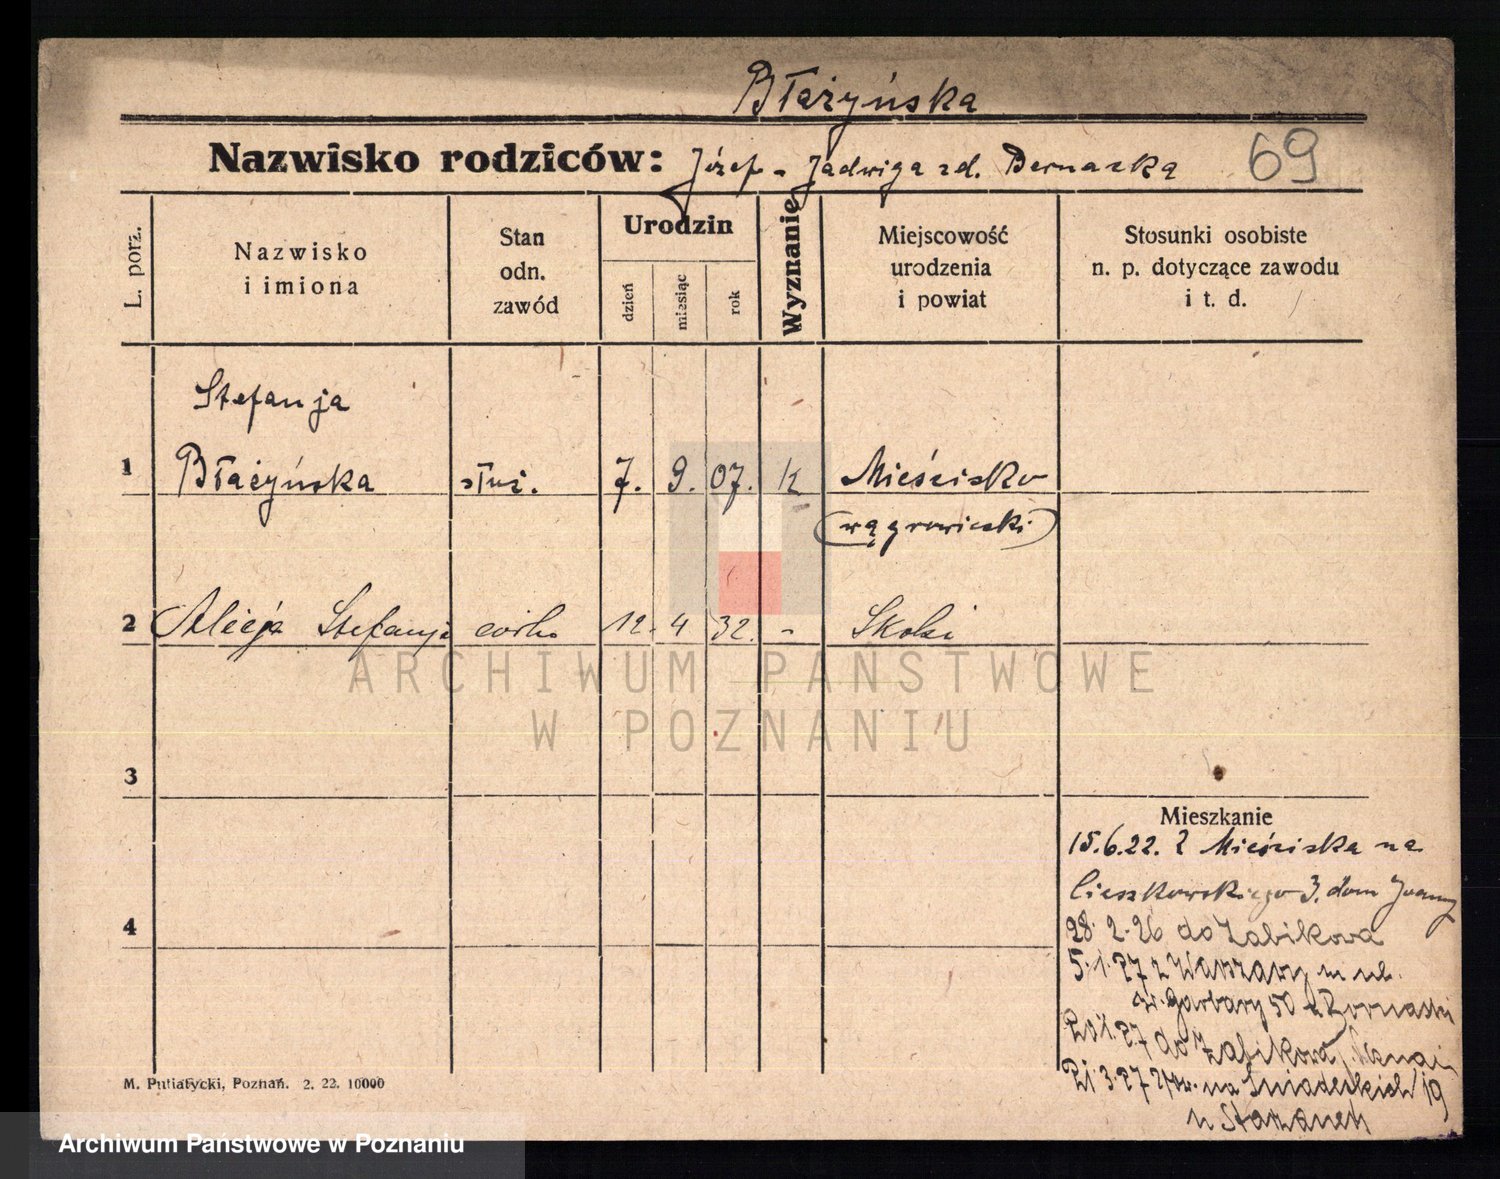 Błażyńska
Nazwisko rodziców: Józef - Jadwiga zd. Bernacka 69
L. porz.
Nazwisko
i imiona
Stan
odn.
zawód
Urodzin
dzień
miesiąc
rok
Wyznanie
Miejscowość
urodzenia
i powiat
Stosunki osobiste
n. p. dotyczące zawodu
i t. d.
Stefanja
1 Błażyńska służ. 7. 9. 07. K Mieścisko
(wągrowiecki)
2 Alicja Stefanja córka 12. 4 32. - Skoki
3
4
Mieszkanie
15.6.22. z Mieściska na
Cieszkowskiego 3. dom
28. 2. 26 do Żabikowa
5. 1. 27 z Warszawy
Garbary 50
do Żabikowa
3. 27 na Śniadeckich 19
M. Putiatycki, Poznań. 2. 22. 10000
ARCHIWUM PAŃSTWOWE
W POZNANIU
Archiwum Państwowe w Poznaniu